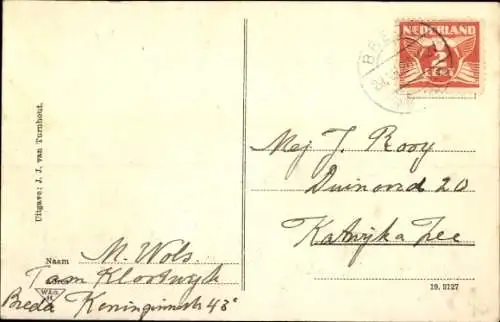 NEDERLAND
2
CENT
BRE
Uitgave: J. J. van Turnhout.
Mej J. Rooy
Duinoord 20
Katwijk a Zee
Naam M. Wols.
Toon Klootwijk
Breda Koninginnestr 48
19. 3127